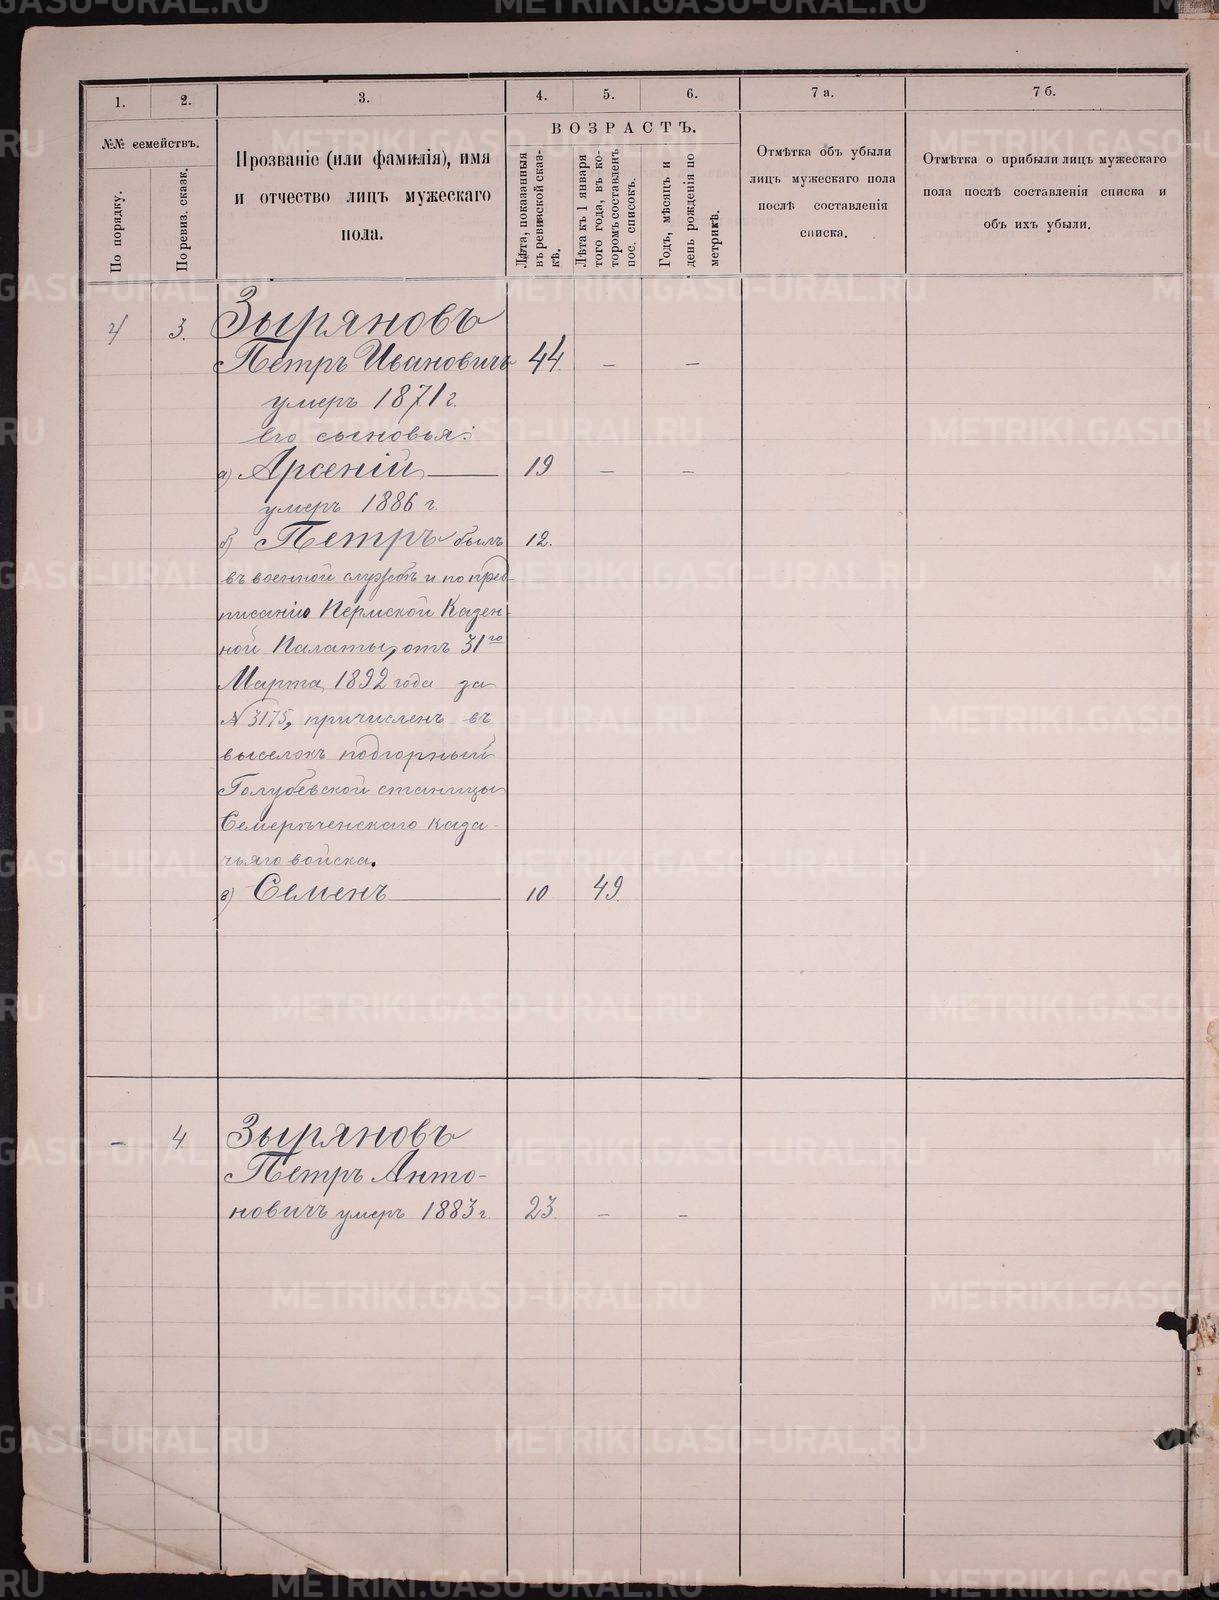 1.
2.
3.
4.
5.
6.
7 а.
7 б.
№№ семействъ.
По порядку.
По ревиз. сказк.
Прозваніе (или фамилія), имя
и отчество лицъ мужескаго
пола.
ВОЗРАСТЪ.
Лѣта, показанныя
въ ревизской сказ-
кѣ.
Лѣта къ 1 января
того года, въ ко-
торомъ составленъ
пос. списокъ.
Годъ, мѣсяцъ и
день рожденія по
метрикѣ.
Отмѣтка объ убыли
лицъ мужескаго пола
послѣ составленія
списка.
Отмѣтка о прибыли лицъ мужескаго
пола послѣ составленія списка и
объ ихъ убыли.
3. Зыряновъ
Петръ Ивановичъ 44. – –
умеръ 1871 г.
его сыновья:
а) Арсеній 19 – –
умеръ 1886 г.
б) Петръ былъ 12.
въ военной службѣ и по пред-
писанію Пермской Казен-
ной Палаты, отъ 31го
Марта 1892 года за
№ 3175, причисленъ въ
выселокъ подгорный
Голубевской станицы
Семирѣченскаго каза-
чьяго войска.
Семенъ 10 49.
– 4 Зыряновъ
Петръ Анто-
новичъ умеръ 1883 г. 23. – –
METRIKI.GASO-URAL.RU